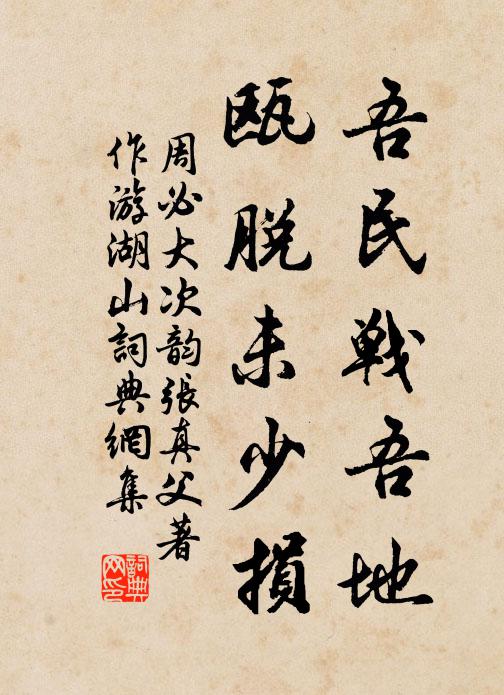 吾民戦吾地
瓯脱未少損
周必大次韵張真父著
作游湖山詞典網集
詞典
网印